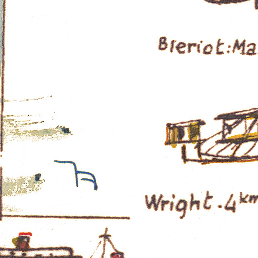 Bleriot:Ma
Wright.4km